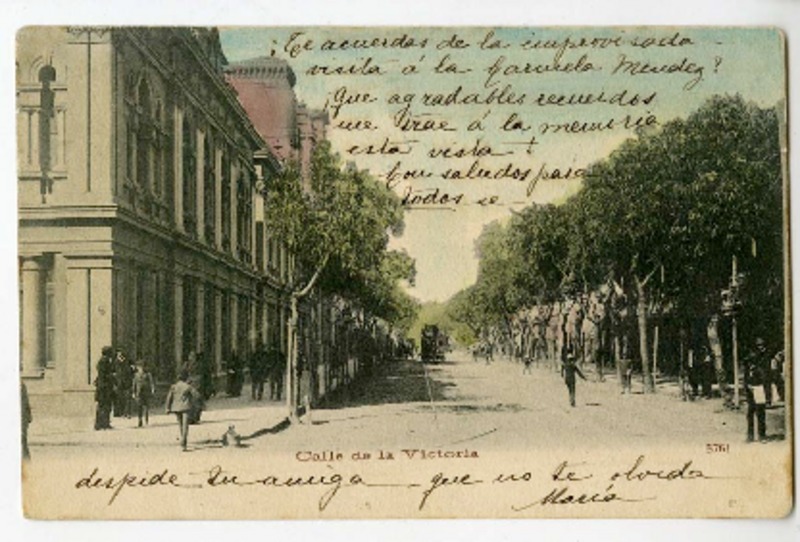 ¡Te acuerdas de la improvisada
visita á la Carmela Mendez?
¡Que agradables recuerdos
me trae á la memoria
esta vista!
Con saludos para
todos se
Calle de la Victoria
5761
despide tu amiga que no te olvida
María